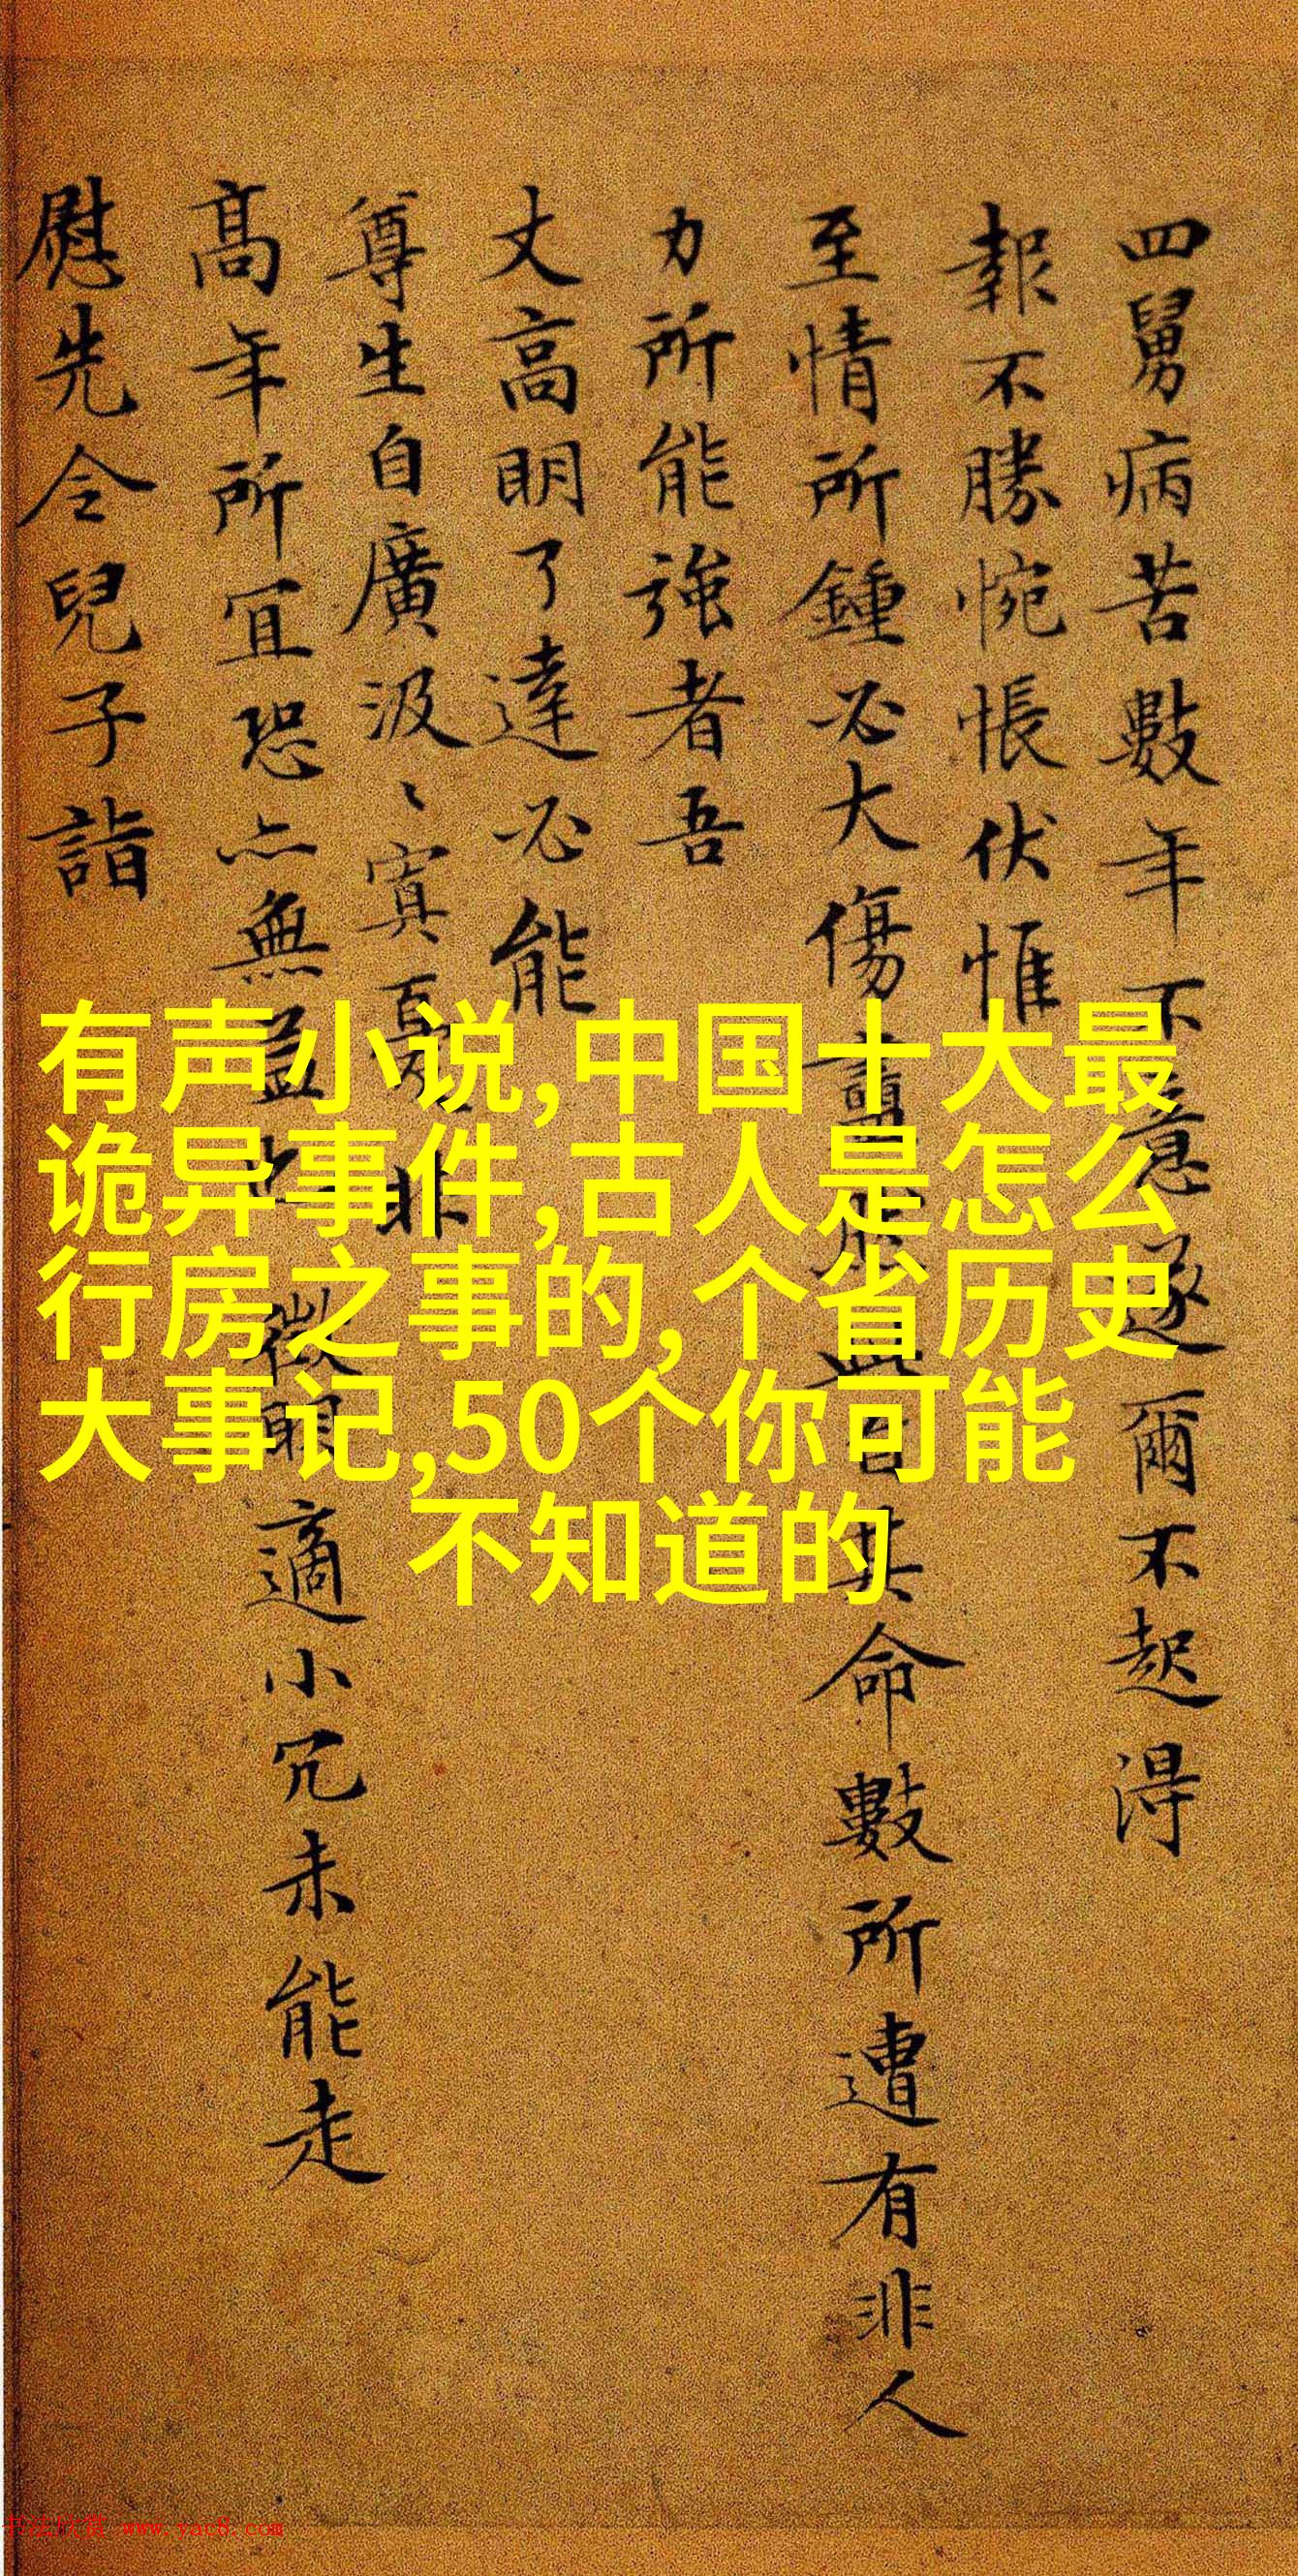 四舅病苦數年不意遂爾不起得
報不勝惋悵伏惟
至情所鍾必大傷其命數所遭有非人
力所能強者吾
丈高明了達必能
尊生自廣汲〻寘憂非
高年所宜恐亦無益也微適小冗未能走
慰先令兒子詣
有声小说,中国十大最
诡异事件,古人是怎么
行房之事的,个省历史
大事记,50个你可能
不知道的
书法欣赏 www.yac8.com